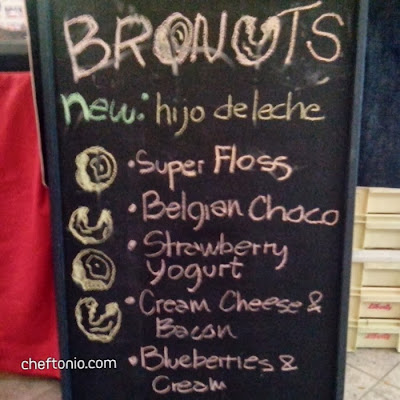 BRONUTS
new: hijo de leche
• Super Floss
• Belgian Choco
• Strawberry
Yogurt
• Cream Cheese &
Bacon
• Blueberries &
Cream
cheftonio.com